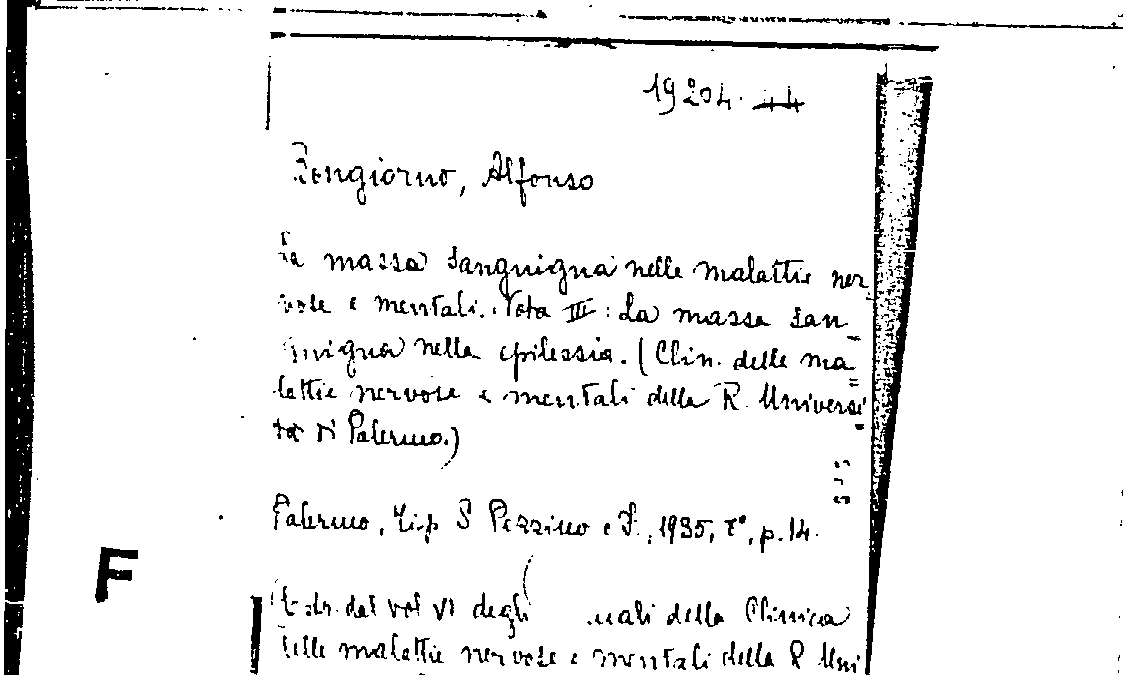 19204. 44
Bongiorno, Alfonso
La massa sanguigna nelle malattie ner
vose e mentali. Nota III: La massa san_
guigna nella epilessia. (Clin. delle ma_
lattie nervose e mentali della R. Universi
tà di Palermo.)
Palermo, Tip S Pezzino e F., 1935, 8°, p. 14.
Estr. dal vol VI degli nali della Clinica
delle malattie nervose e mentali della R Uni
F